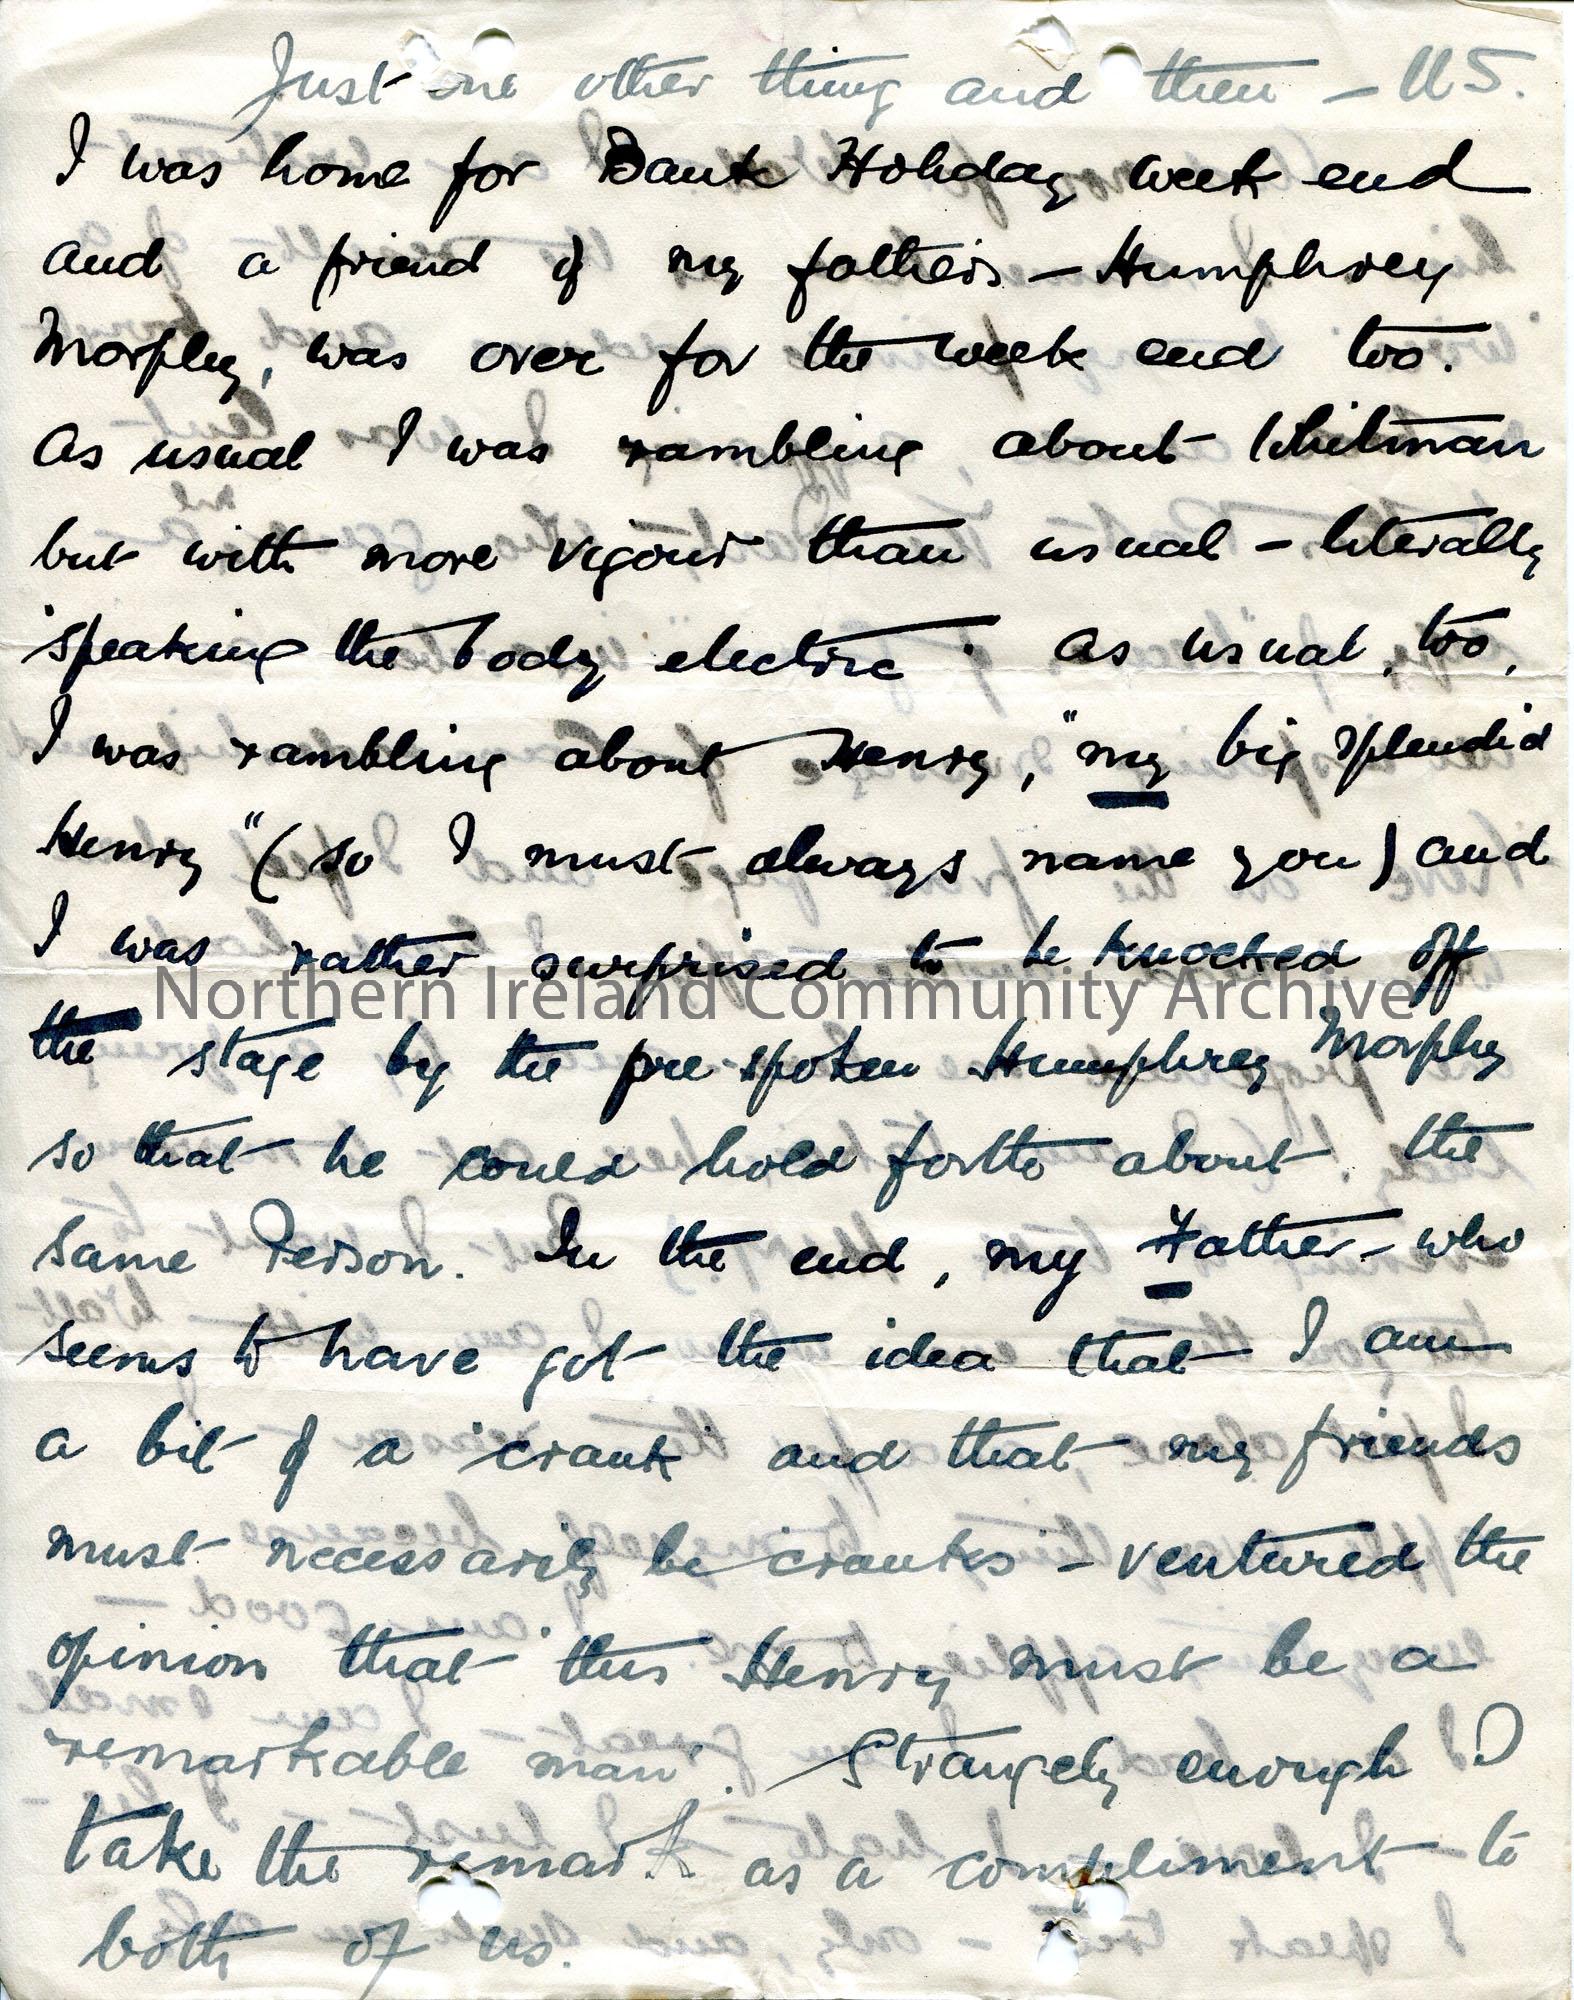 Just one other thing and then – US.
I was home for Bank Holiday week end
and a friend of my father's – Humphrey
Morphy, was over for the week end too.
As usual I was rambling about Whitman
but with more vigour than usual – literally
'speaking the body electric'. As usual, too,
I was rambling about Henry, "my big splendid
Henry" (so I must always name you) and
I was rather surprised to be knocked off
the stage by the pre-spoken Humphrey Morphy
so that he could hold forth about the
same Person. In the end, my Father – who
seems to have got the idea that I am
a bit of a 'crank' and that my friends
must necessarily be cranks – ventured the
opinion that 'this Henry must be a
remarkable man'. Strangely enough I
take the remark as a compliment to
both of us.
Northern Ireland Community Archive